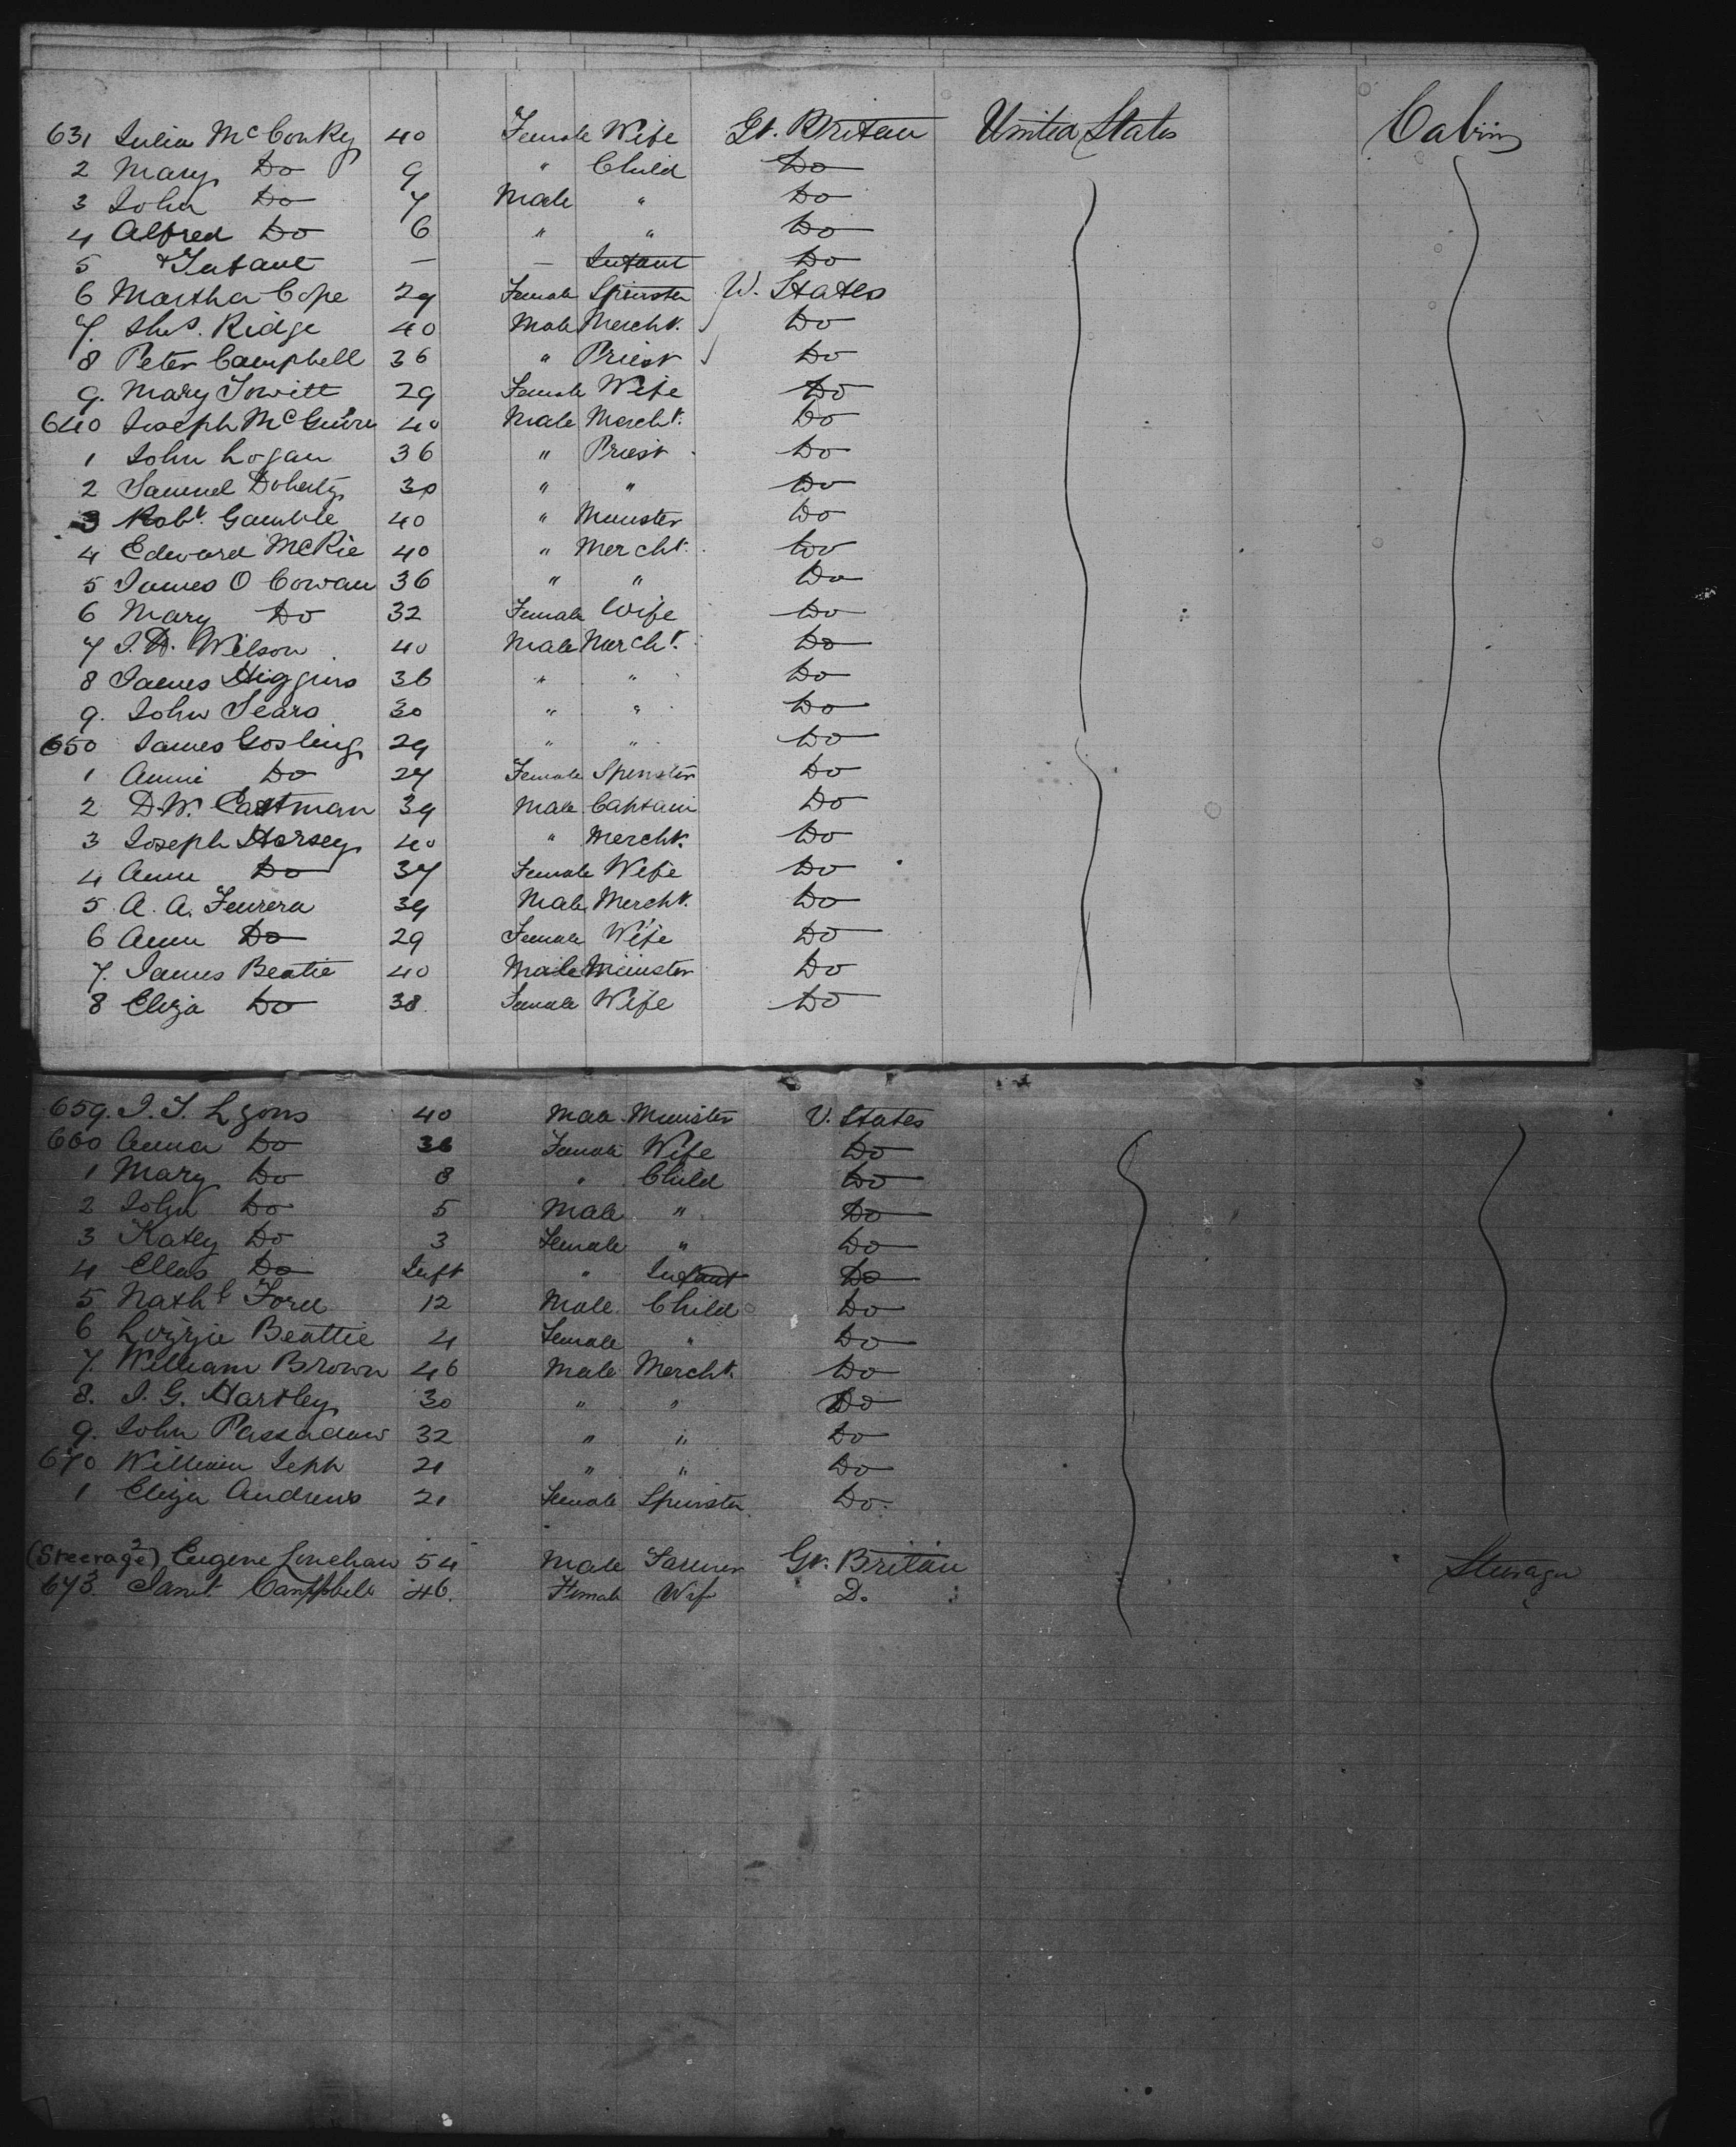 631 Julia McConkey 40 Female Wife Gt. Britain United States Cabin
2 Mary Do 9 " Child Do
3 John Do 7 Male " Do
4 Alfred Do 6 " " Do
5 & Infant — — Infant Do
6 Martha Cope 29 Female Spinster U. States
7. Thos. Ridge 40 Male Mercht. Do
8 Peter Campbell 36 " Priest Do
9. Mary Jowitt 29 Female Wife Do
640 Joseph McGuire 40 Male Mercht. Do
1 John Logan 36 " Priest Do
2 Samuel Doherty 30 " " Do
3 Robt. Gamble 40 " Minister Do
4 Edward McKie 40 " Mercht. Do
5 James O Cowan 36 " " Do
6 Mary Do 32 Female Wife Do
7 J. D. Wilson 40 Male Mercht. Do
8 James Higgins 36 " " Do
9. John Sears 30 " " Do
650 James Gosling 29 " " Do
1 Annie Do 27 Female Spinster Do
2 D.W. Eastman 39 Male Captain Do
3 Joseph Horsey 40 " Mercht. Do
4 Anne Do 37 Female Wife Do
5 A. A. 39 Male Mercht. Do
6 Ann Do 29 Female Wife Do
7. James Beatie 40 Male Minister Do
8 Eliza Do 38 Female Wife Do
659. J. T. Lyons 40 Male Minister U. States
660 Anna Do 36 Female Wife Do
1 Mary Do 8 " Child Do
2 John Do 5 Male " Do
3 Katey Do 3 Female " Do
4 Do Inft " Infant Do
5 Nathl Ford 12 Male Child Do
6 Lizzie Beattie 4 Female " Do
7. William Brown 46 Male Mercht. Do
8. J. G. Hartley 30 " " Do
9. John 32 " " Do
670 William 21 " " Do
1 Eliza Andrews 21 Female Spinster Do.
(Steerage) 2 Eugene Linehan 54 Male Farmer Gt. Britain Steerage
673. Janet Campbell 46. Female Wife D.